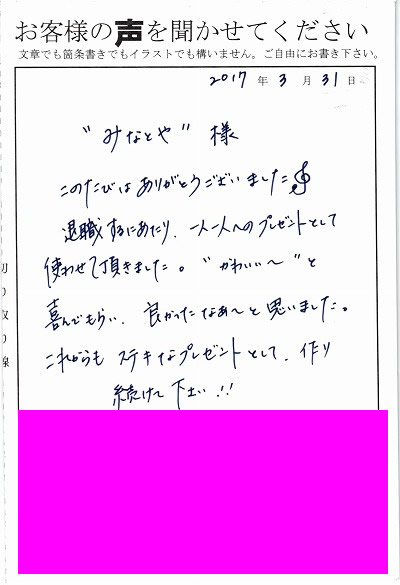 お客様の声を聞かせてください
文章でも箇条書きでもイラストでも構いません。ご自由にお書き下さい。
2017年3月31日
"みなとや"様
このたびはありがとうございました
退職するにあたり、一人一人へのプレゼントとして
使わせて頂きました。"かわいい〜"と
喜んでもらい、良かったなぁ〜と思いました。
これからもステキなプレゼントとして、作り
続けて下さい!!
切り取り線